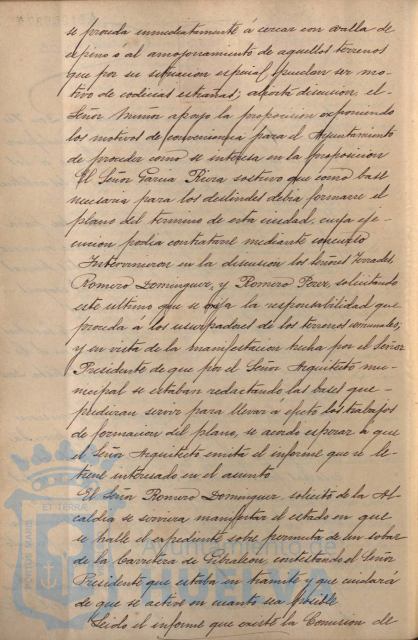 se proceda inmediatamente á cercar con valla de
espino ó al amojonamiento de aquellos terrenos
que por su situacion especial puedan ser mo-
tivo de codicias estrañas; abierta discusion, el
Señor Muñoz apoyó la proposicion exponiendo
los motivos de conveniencia para el Ayuntamiento
de proceda como se interesa en la proposicion
El Señor Garcia Riera sostuvo que como base
necesaria para los deslindes debia formarse el
plano del termino de esta ciudad, cuya eje-
cucion podia contratarse mediante concurso
Intervinieron en la discusion los señores Terrades,
Romero Dominguez, y Romero Perez, solicitando
este ultimo que se exija la responsabilidad que
proceda á los usurpadores de los terrenos comunales;
y en vista de la manifestacion hecha por el Señor
Presidente de que por el Señor Arquitecto mu-
nicipal se estaban redactando las bases que
pudieran servir para llevar a efecto los trabajos
de formacion del plano, se acordó esperar á que
el Señor Arquitecto emita el informe que se le-
tiene interesado en el asunto
El Señor Romero Dominguez solicitó de la Al-
caldia se sirviera manifestar el estado en que
se halle el expediente sobre permuta de un solar
de la Carretera de Gibraleon, contestando el Señor
Presidente que estaba en trámite y que cuidará
de que se active en cuanto sea posible
Leido el informe que emite la Comision de
ET TERRÆ
PORTUS MARIS
Ayuntamiento de
HUELVA